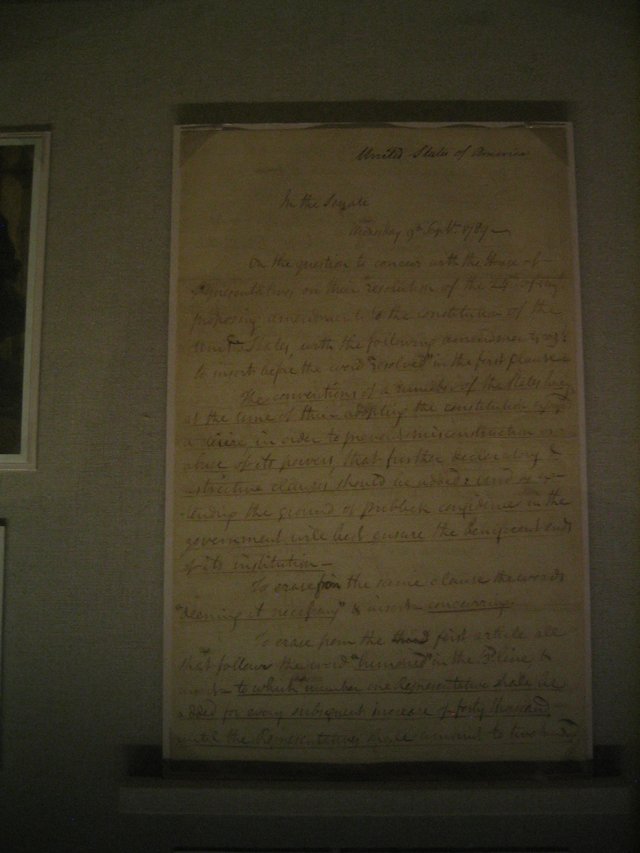 United States of America
In the Senate
9th Sept. 1789
On the question to concur with the House of
on their resolution of the 24th of
proposing amendments to the constitution of the
States, with the following amendment
to insert before the word "resolved" in the first clause
The conventions of a number of the States
at the time of their adopting the constitution
a desire, in order to prevent misconstruction or
abuse of its powers, that further declaratory &
strictive clauses should be added: and as ex-
tending the ground of publick confidence in the
government will best ensure the beneficent ends
of its institution—
To erase from the same clause the words
"deeming it necessary" & insert concurring
To erase from the first article all
that follows the word "hundred" in the &
insert to which number one Representative shall be
added for every subsequent increase of forty thousand
until the Representatives shall amount to two